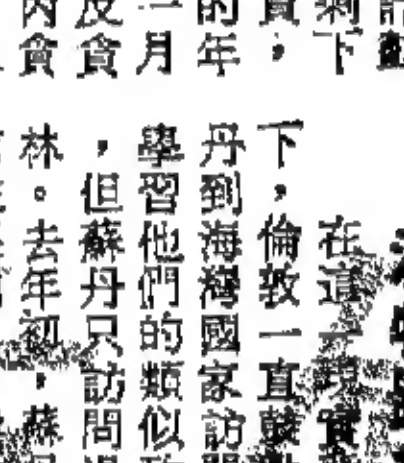 剩下
的年
一月
反貪
貪
在這一現實
下，倫敦一直鼓
丹到海灣國家訪
學習他們的類似
，但蘇丹只訪問
林。去年初，蘇